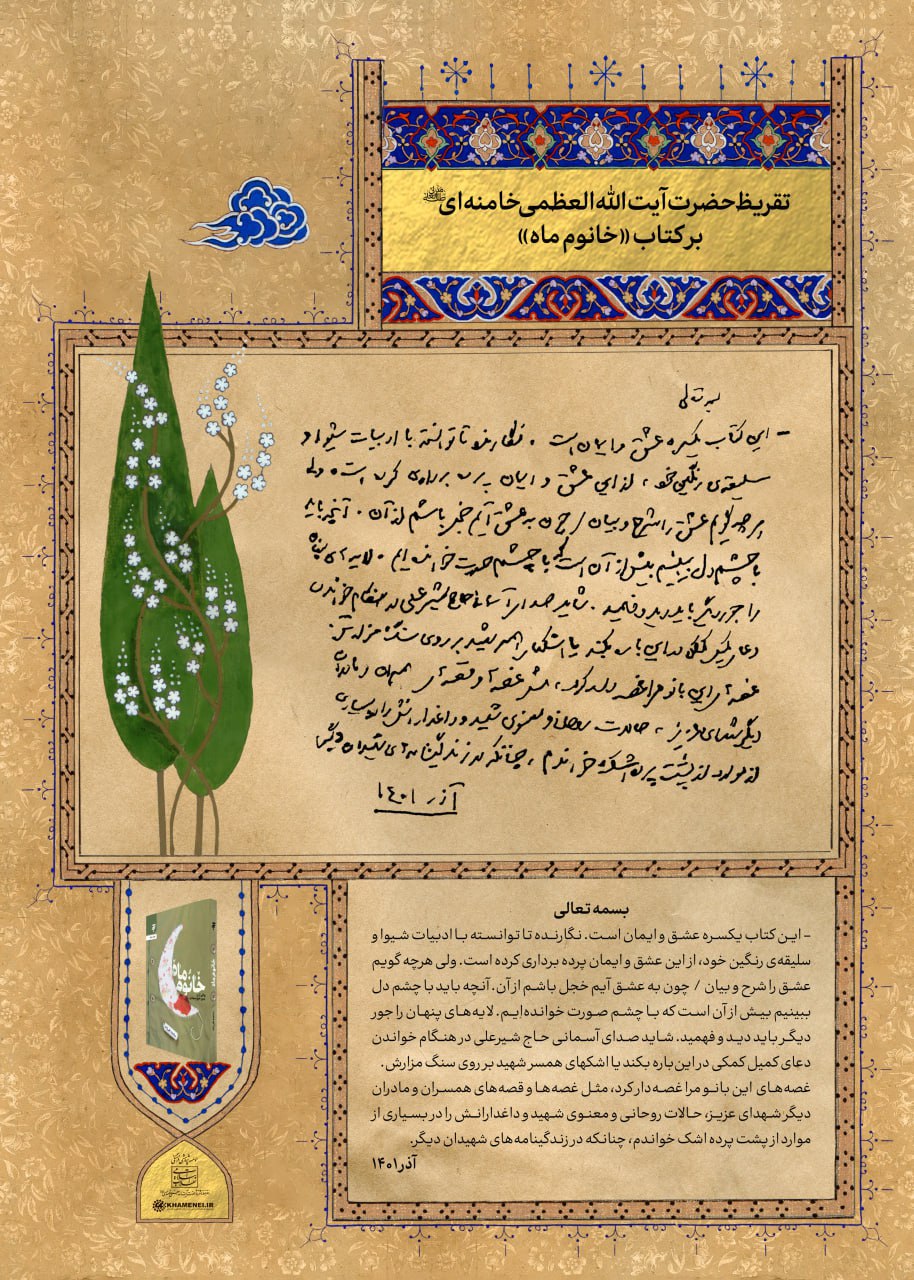 تقریظ حضرت آیت‌الله العظمی خامنه‌ای
بر کتاب «خانوم ماه»
بسمه تعالی
- این کتاب یکسره عشق و ایمان است. نگارنده تا توانسته با ادبیات شیوا و
سلیقه‌ی رنگین خود، از این عشق و ایمان پرده برداری کرده است. ولی
هر چه گویم عشق را شرح و بیان / چون به عشق آیم خجل باشم از آن. آنچه باید
با چشم دل ببینیم بیش از آن است که با چشم صورت خوانده‌ایم. لایه‌های پنهان
را جور دیگر باید دید و فهمید. شاید صدای آسمانی حاج شیرعلی در هنگام خواندن
دعای کمیل کمکی در این باره بکند یا اشکهای همسر شهید بر روی سنگ مزارش.
غصه‌های این بانو مرا غصه‌دار کرد، مثل غصه‌ها و قصه‌های همسران و مادران
دیگر شهدای عزیز، حالات روحانی و معنوی شهید و داغدارانش را در بسیاری
از موارد از پشت پرده اشک خواندم، چنانکه در زندگینامه‌های شهیدان دیگر.
آذر ۱۴۰۱
بسمه تعالی
- این کتاب یکسره عشق و ایمان است. نگارنده تا توانسته با ادبیات شیوا و
سلیقه‌ی رنگین خود، از این عشق و ایمان پرده برداری کرده است. ولی هرچه گویم
عشق را شرح و بیان / چون به عشق آیم خجل باشم از آن. آنچه باید با چشم دل
ببینیم بیش از آن است که با چشم صورت خوانده‌ایم. لایه‌های پنهان را جور
دیگر باید دید و فهمید. شاید صدای آسمانی حاج شیرعلی در هنگام خواندن
دعای کمیل کمکی در این باره بکند یا اشکهای همسر شهید بر روی سنگ مزارش.
غصه‌های این بانو مرا غصه‌دار کرد، مثل غصه‌ها و قصه‌های همسران و مادران
دیگر شهدای عزیز، حالات روحانی و معنوی شهید و داغدارانش را در بسیاری از
موارد از پشت پرده اشک خواندم، چنانکه در زندگینامه‌های شهیدان دیگر.
آذر ۱۴۰۱
خانوم ماه
خانوم ماه
KHAMENEI.IR